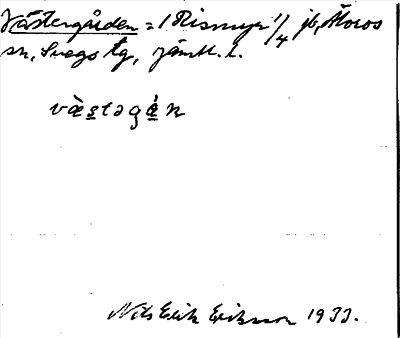 Västergården = 1 Rismyr 1/4 jb, Älvros
sn, Svegs tg, Jämtl. l.
vä̀s̲təgá̲n
Nils Erik Eriksson 1933.